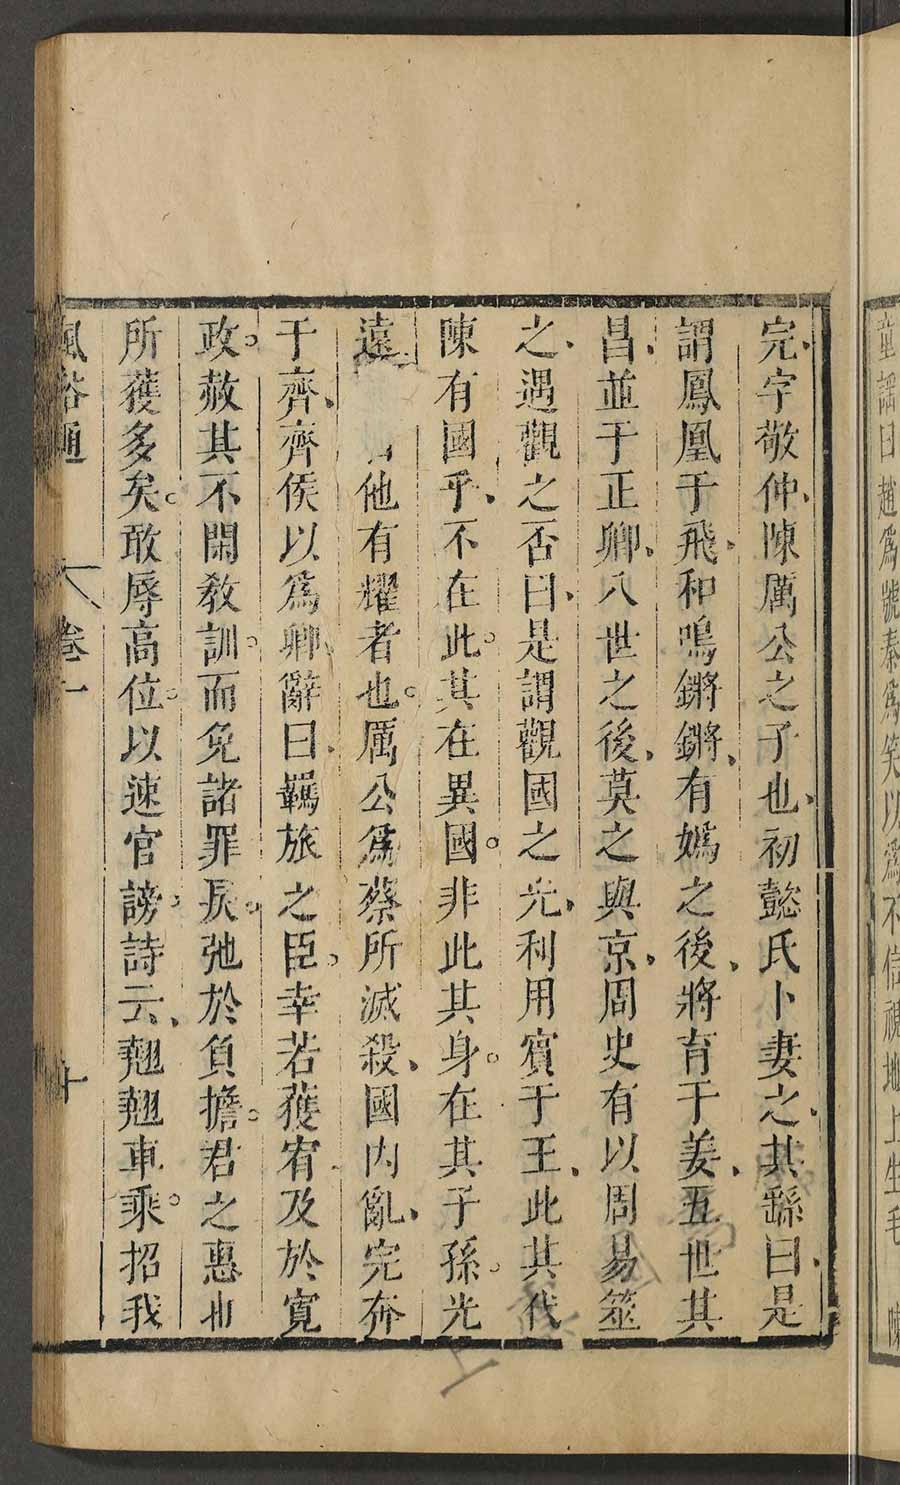 童謠曰趙爲號秦爲笑以爲不信視地上生毛 陳
完、字敬仲、陳厲公之子也、初懿氏卜妻之、其繇曰、是
謂鳳凰于飛、和鳴鏘鏘、有嬀之後、將育于姜、五世其
昌、並于正卿、八世之後、莫之與京、周史有以周易筮
之、遇觀之否曰、是謂觀國之光、利用賓于王、此其代
陳有國乎、不在此。其在異國。非此其身。在其子孫。光
遠他有耀者也。厲公爲蔡所滅殺、國內亂、完奔
于齊、齊侯以爲卿、辭曰、羈旅之臣。幸若獲宥及於寬
政。赦其不閑教訓。而免諸罪戾。弛於負擔。君之惠也
所獲多矣。敢辱高位。以速官謗。詩云、翹翹車乘。招我
風俗通 卷一 十